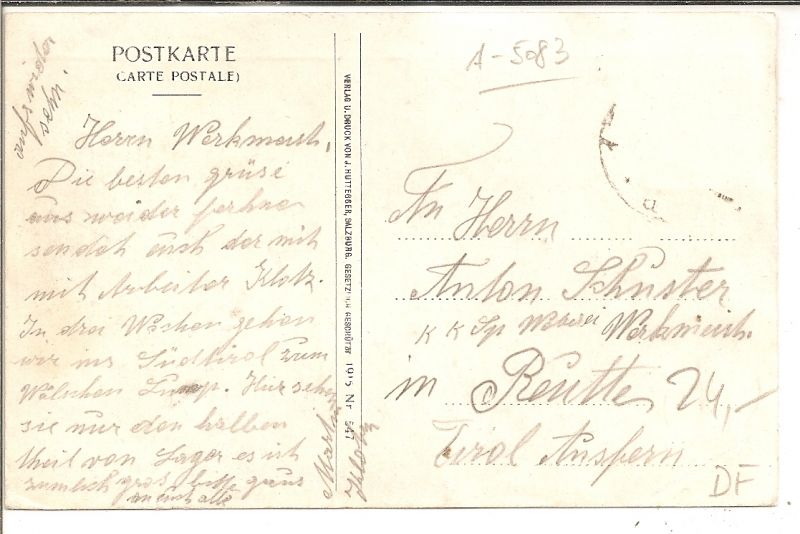 POSTKARTE
(CARTE POSTALE)
aufswider
sehn!
Herrn Werkmeist.
Die besten grüse
aus weider ferhne
sendet euch der mit
mit Arbeiter Klotz.
In drei Wochen gehen
wir ins Südtirol zum
Wälschen Lump. Hir sehen
sie nur den halben
theil von Lager es ist
zumlich gros bitte grus
an euch alle
Martin
Klotz
VERLAG U. DRUCK VON J. HUTTEGGER, SALZBURG. GESETZLICH GESCHÜTZT 1915 Nr. 547
A-5083
An Herrn
Anton Schuster
K K Sp Werkmeist.
in Reutte 24,-
Tirol
DF